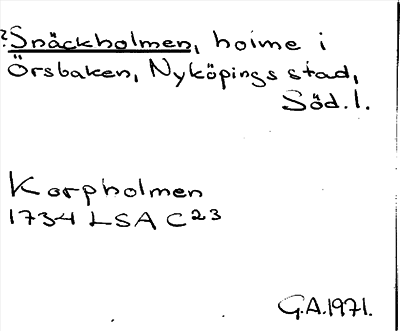 ?Snäckholmen, holme i
Örsbaken, Nyköpings stad,
Söd.l.
Korpholmen
1734 LSA C23
G.A.1971.